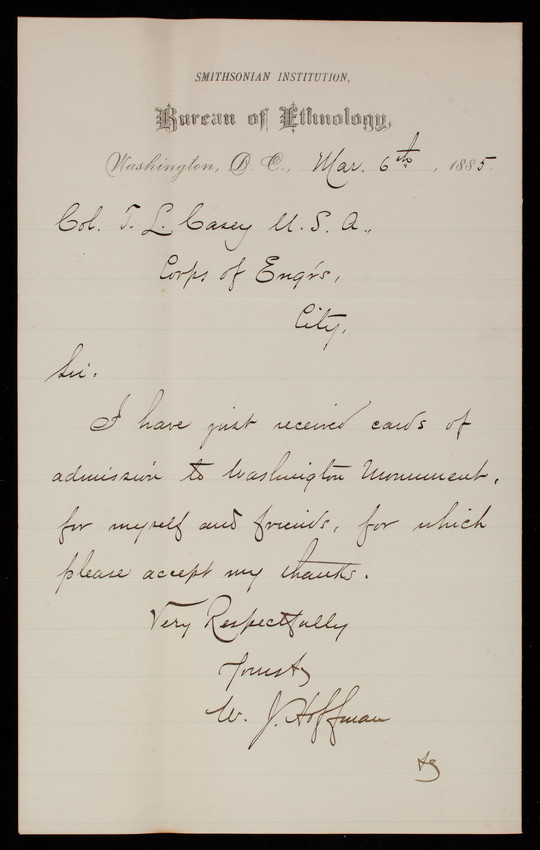 SMITHSONIAN INSTITUTION,
Bureau of Ethnology,
Washington, D. C., Mar. 6th, 1885.
Col. T. L. Casey U. S. A.,
Corps of Engrs,
City.
Sir.
I have just received cards of
admission to Washington Monument,
for myself and friends, for which
please accept my thanks.
Very Respectfully
Yours
W. J. Hoffman